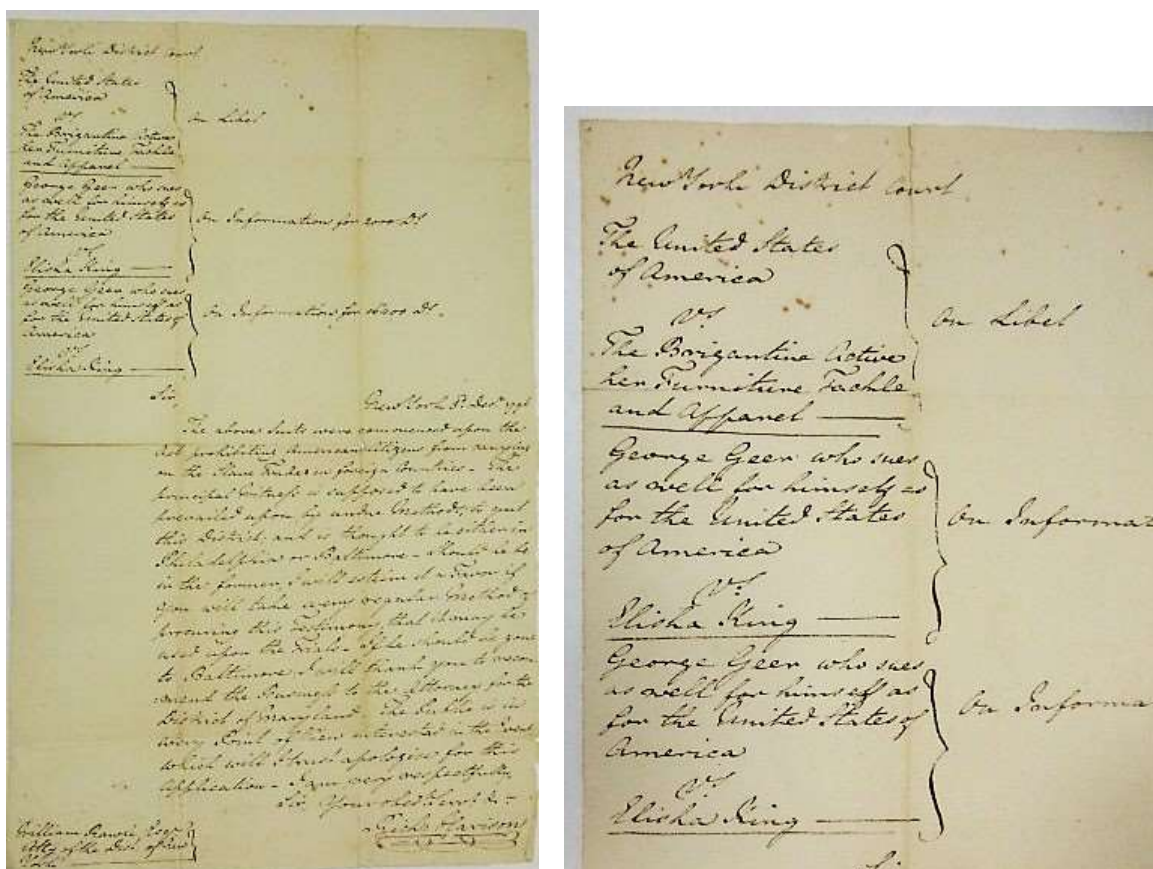 New York District Court
The United States
of America
Vs
The Brigantine Active
her Furniture Tackle
and Apparel
On Libel
George Geer who sues
as well for himself as
for the United States
of America
Vs
Elisha King
On Information for 2000 Ds
George Geer who sues
as well for himself as
for the United States of
America
Vs
Elisha King
On Information for Ds.
Sir,
New York Decr
The above Suits were commenced upon the
Act prohibiting American Citizens from carrying
on the Slave Trade to foreign Countries - The
principal Witness is supposed to have been
prevailed upon by undue Methods, to quit
this District and is thought to be either in
Philadelphia or Baltimore - Should he be
in the former, I will esteem it a Favor if
you will take some regular Method of
procuring his Testimony, that it may be
used upon the Trial - If he should be gone
to Baltimore I will thank you to
the to the Attorney for the
District of Maryland. The Public is in
every Point of View interested in the Event
which will I trust apologise for this
Application - I am very respectfully
Sir Your obed Servt &c -
Richd Harison
William Rawle Esqr
Atty of the Dist of
New York District Court
The United States
of America
Vs
The Brigantine Active
her Furniture Tackle
and Apparel
On Libel
George Geer who sues
as well for himself as
for the United States
of America
Vs
Elisha King
On Informa
George Geer who sues
as well for himself as
for the United States of
America
Vs
Elisha King
On Informa